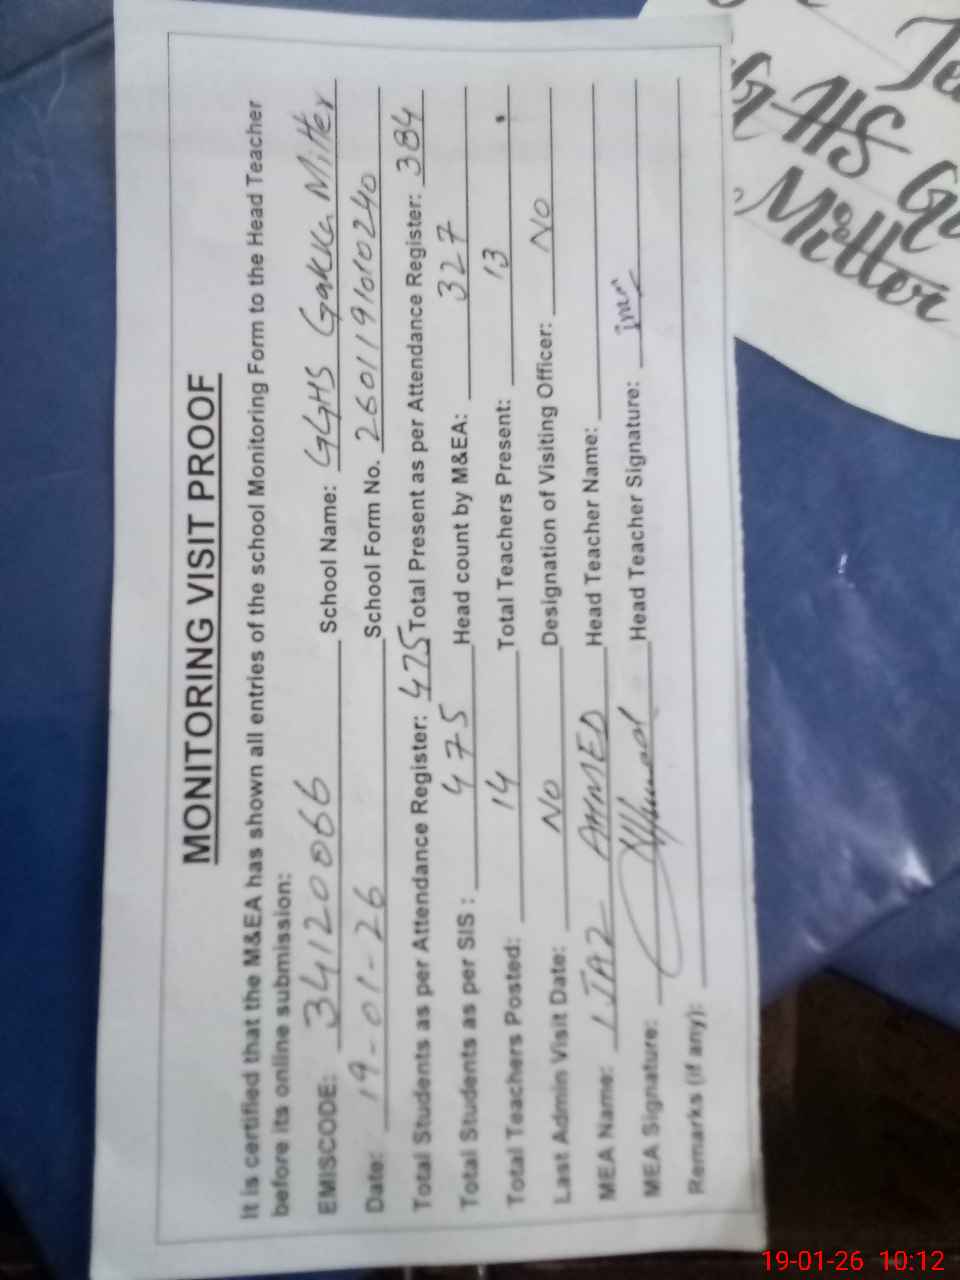 MONITORING VISIT PROOF
It is certified that the M&EA has shown all entries of the school Monitoring Form to the Head Teacher
before its online submission:
EMISCODE: 34120066 School Name: GGHS Gakka Mitter
Date: 19-01-26 School Form No. 2601191010240
Total Students as per Attendance Register: 475 Total Present as per Attendance Register: 384
Total Students as per SIS : 475 Head count by M&EA: 327
Total Teachers Posted: 14 Total Teachers Present: 13
Last Admin Visit Date: No Designation of Visiting Officer: No
MEA Name: IJAZ AHMED Head Teacher Name:
MEA Signature: Head Teacher Signature:
Remarks (if any):
GHS
Mitter
19-01-26 10:12